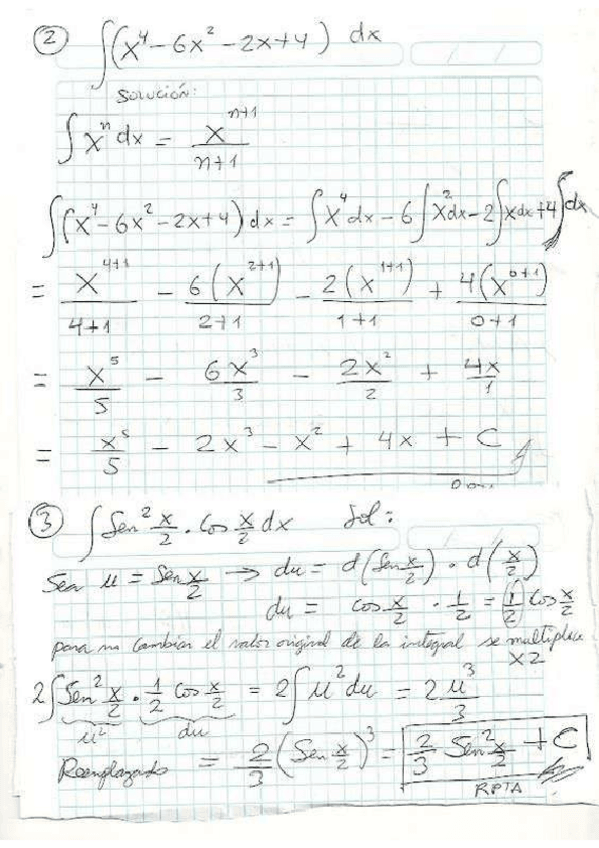 ② ∫(x⁴ - 6x² - 2x + 4) dx
Solución:
∫xⁿ dx = xⁿ⁺¹/(n+1)
∫(x⁴ - 6x² - 2x + 4) dx = ∫x⁴ dx - 6∫x² dx - 2∫x dx + 4∫dx
= x⁴⁺¹/(4+1) - 6(x²⁺¹)/(2+1) - 2(x¹⁺¹)/(1+1) + 4(x⁰⁺¹)/(0+1)
= x⁵/5 - 6x³/3 - 2x²/2 + 4x/1
= x⁵/5 - 2x³ - x² + 4x + C
③ ∫Sen² x/2 · Cos x/2 dx Sol:
Sea u = Sen x/2 → du = d(Sen x/2) · d(x/2)
du = cos x/2 · 1/2 = 1/2 Cos x/2
para no cambiar el valor original de la integral se multiplica
x2
2∫Sen² x/2 · 1/2 Cos x/2 = 2∫u² du = 2u³/3
u² du
Reemplazando = 2/3 (Sen x/2)³ = 2/3 Sen² x/2 + C
RPTA